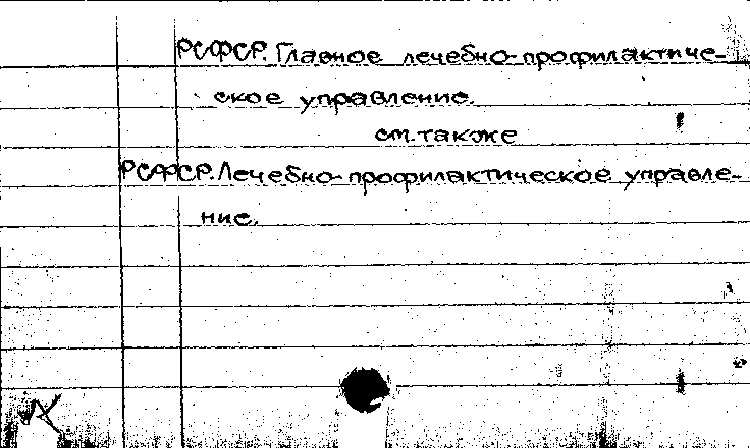 РСФСР. Главное лечебно-профилактиче-
ское управление.
см. также
РСФСР. Лечебно-профилактическое управле-
ние.